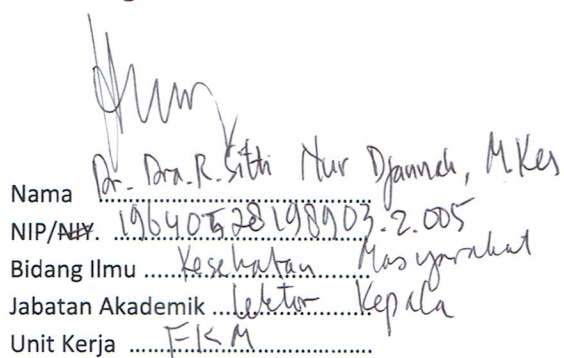 Nama Dr. Dra. R. Sitti Nur Djannah, M.Kes
NIP/NIY. 19640528198903.2.005
Bidang Ilmu Kesehatan Masyarakat
Jabatan Akademik Lektor Kepala
Unit Kerja FKM